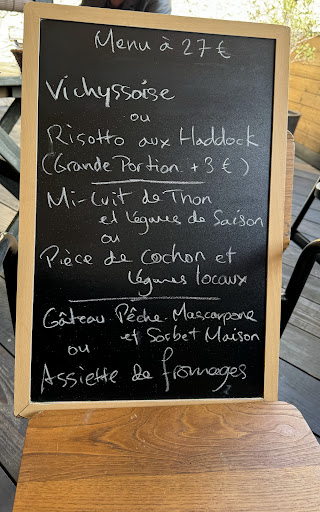 Menu à 27 €
Vichyssoise
ou
Risotto aux Haddock
(Grande Portion + 3 €)
Mi-Cuit de Thon
et légumes de Saison
ou
Pièce de cochon et
légumes locaux
Gâteau Pêche-Mascarpone
et Sorbet Maison
ou
Assiette de fromages